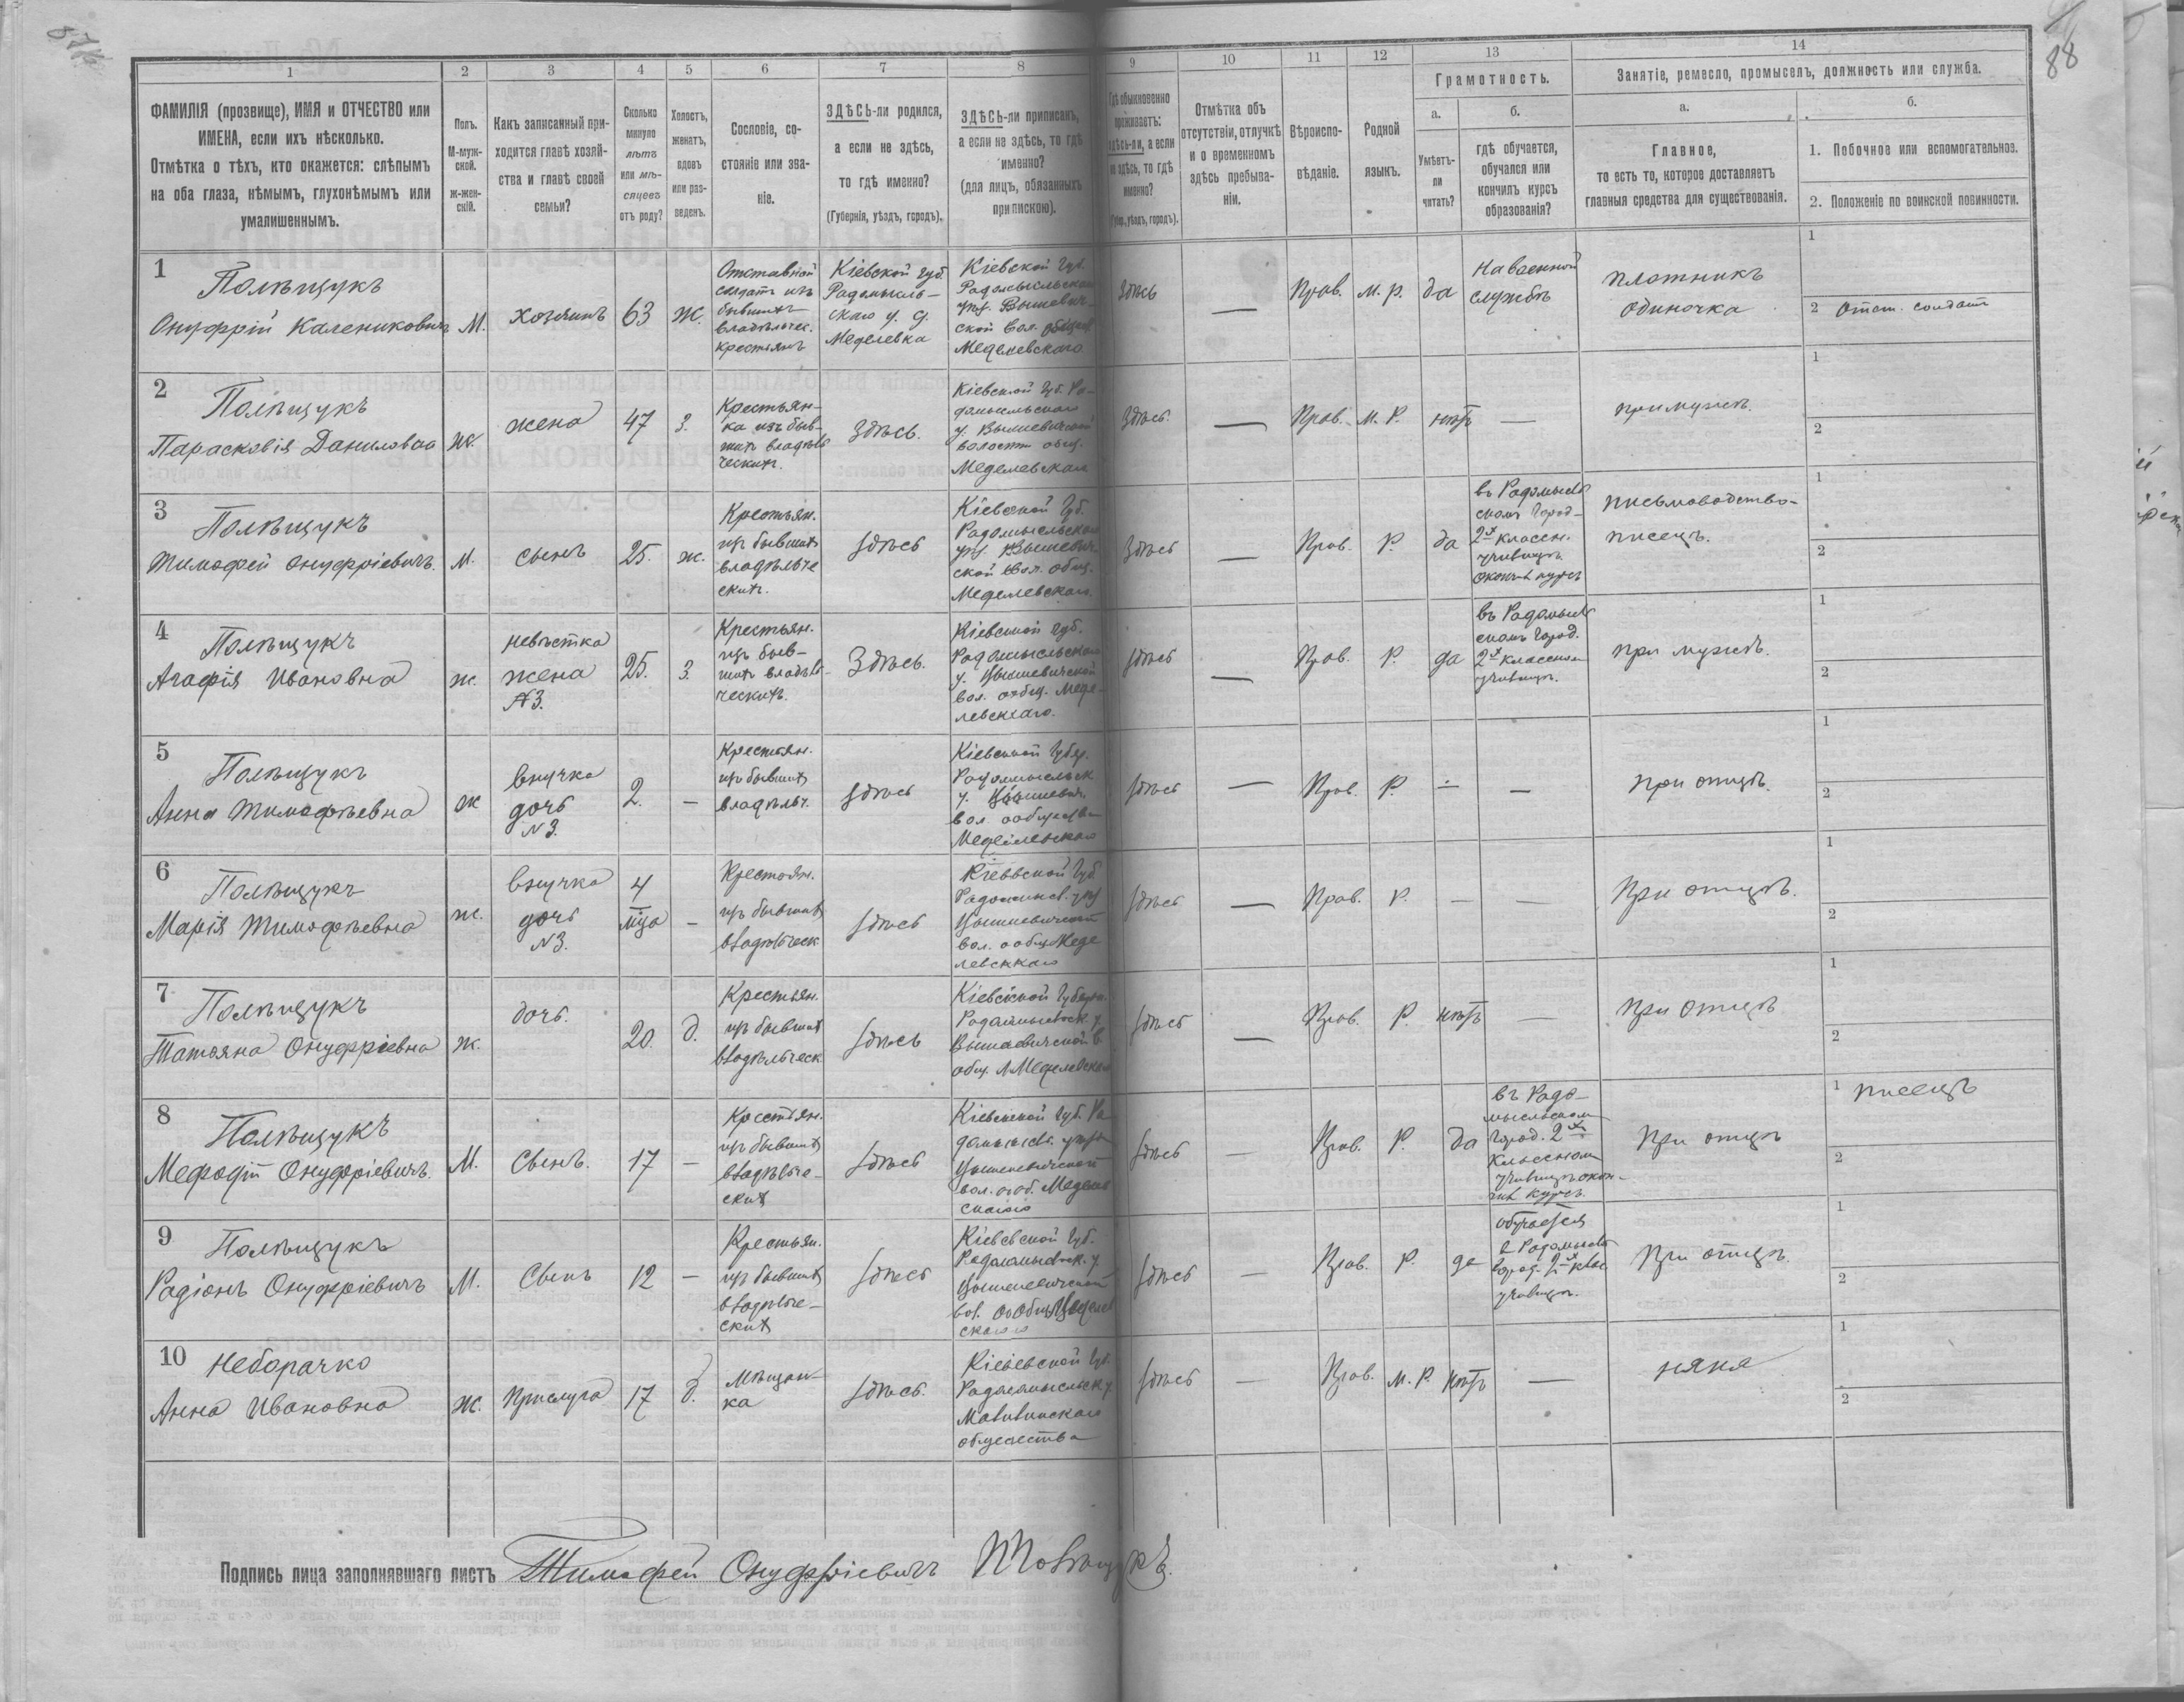 87
88
1 2 3 4 5 6 7 8 9 10 11 12 13 14
ФАМИЛІЯ (прозвище), ИМЯ и ОТЧЕСТВО или
ИМЕНА, если ихъ нѣсколько.
Отмѣтка о тѣхъ, кто окажется: слѣпымъ
на оба глаза, нѣмымъ, глухонѣмымъ или
умалишеннымъ.
Полъ.
М-муж-
ской.
ж-жен-
скій.
Какъ записанный при-
ходится главѣ хозяй-
ства и главѣ своей
семьи?
Сколько
минуло
лѣтъ
или мѣ-
сяцевъ
отъ роду?
Холостъ,
женатъ,
вдовъ
или раз-
веденъ.
Сословіе, со-
стояніе или зва-
ніе.
ЗДѢСЬ-ли родился,
а если не здѣсь,
то гдѣ именно?
(Губернія, уѣздъ, городъ).
ЗДѢСЬ-ли приписанъ,
а если не здѣсь, то гдѣ
именно?
(для лицъ, обязанныхъ
припискою).
Гдѣ обыкновенно
проживаетъ:
здѣсь-ли, а если
не здѣсь, то гдѣ
именно?
(Губер., уѣздъ, городъ).
Отмѣтка объ
отсутствіи, отлучкѣ
и о временномъ
здѣсь пребыва-
ніи.
Вѣроиспо-
вѣданіе.
Родной
языкъ.
Грамотность.
а.
Умѣетъ-
ли
читать?
б.
гдѣ обучается,
обучался или
кончилъ курсъ
образованія?
Занятіе, ремесло, промыселъ, должность или служба.
а.
Главное,
то есть то, которое доставляетъ
главныя средства для существованія.
б.
1. Побочное или вспомогательное.
2. Положеніе по воинской повинности.
1
Полѣщукъ
Онуфрій Калениковичъ
М.
хозяинъ
63
Ж.
Отставной
солдатъ изъ
бывшихъ
владѣльчес.
крестьянъ
Кіевской губ.
Радомысль-
скаго у. д.
Меделевка
Кіевской Губ.
Радомысльскаго
уѣз. Вышевич-
ской вол. общес
Меделевскаго
Здѣсь
—
Прав.
м. р.
да
На военной
службѣ
плотникъ
одиночка
1
2 Отст. солдатъ
2
Полѣщукъ
Парасковія Даниловна
ж.
жена
47
З.
Крестьян-
ка изъ быв-
шихъ владѣль
ческихъ.
Здѣсь.
Кіевской Губ. Ра-
домысльскаго
у. Вышевичской
волости общ.
Меделевскаго
Здѣсь.
—
Прав.
М. Р.
нѣтъ
—
при мужѣ.
1
2
3
Полѣщукъ
Тимофей Онуфріевичъ.
М.
Сынъ
25.
ж.
Крестьян.
изъ бывшихъ
владѣльче
скихъ.
здѣсь
Кіевской Губ.
Радомысльскаго
уѣз. Вышевич-
ской Вол. общ.
Меделевскаго.
Здѣсь
—
Прав.
Р.
да
въ Радомысль
скомъ Город-
2х классн.
училищѣ
окончилъ курсъ
письмоводство-
писецъ.
1
2
4
Полѣщукъ
Агафія Ивановна
ж.
невѣстка
жена
№3.
25.
З.
Крестьян.
изъ быв-
шихъ владѣль-
ческихъ.
Здѣсь.
Кіевской губ.
Радомысльскаго
у. Вышевичской
вол. общ. Меде-
левскаго.
здѣсь
—
Прав.
Р.
да
въ Радомысль
скомъ Город.
2х классном
училищѣ.
при мужѣ.
1
2
5
Полѣщукъ
Анна Тимофѣевна
ж
внучка
дочь
№3.
2.
—
Крестьян.
изъ бывшихъ
владѣльч.
здѣсь
Кіевской Губер.
Радомысльск
у. Вышевич.
вол. общества
Меделевскаго
здѣсь
—
Прав.
Р.
—
—
при отцѣ.
1
2
6
Полѣщукъ
Марія Тимофѣевна
ж.
внучка
дочь
№3.
4
мца
—
Крестьян.
изъ бывшихъ
владѣльческ
здѣсь
Кіевской Губ
Радомысл. уѣз
Вышевичской
вол. общ Меде
левскаго
здѣсь
—
Прав.
Р.
—
—
При отцѣ.
1
2
7
Полѣщукъ
Татьяна Онуфріевна
ж.
дочь.
20.
д.
Крестьян.
изъ бывших
владѣльческ
здѣсь
Кіевской Губерн.
Радомысльск у.
Вышевичской в.
общ. Меделевскаго
здѣсь
—
Прав.
Р.
нѣтъ
—
при отцѣ
1
2
8
Полѣщукъ
Мефодій Онуфріевичъ.
М.
Сынъ.
17
—
Крестьян.
изъ бывших
владѣльче-
ских
здѣсь
Кіевской Губ. Ра
домысль. уѣзда
Вышевичской
вол. об. Меделев
скаго
здѣсь
—
Прав.
Р.
да
въ Радо-
мысльском
город. 2х
классном
училищѣ окон-
чил курсъ.
При отцѣ
1 писецъ
2
9
Полѣщукъ
Радіонъ Онуфріевичъ
М.
Сынъ
12
—
Крестьян.
изъ бывших
владѣльче-
ских
здѣсь
Кіевской Губ.
Радомысльск. у.
Вышевичской
вол. Общ Меделев
скаго
здѣсь
—
Прав.
Р.
да
обучается
в Радомысль
город. 2х клас.
училищѣ.
При отцѣ.
1
2
10
Неборачко
Анна Ивановна
ж.
Прислуга
17
д.
Мѣщан-
ка
здѣсь.
Кіевской Губ.
Радомысльск у.
Малинскаго
общества
здѣсь
—
Прав.
М. Р.
нѣтъ
—
няня
1
2
Подпись лица заполнявшаго листъ Тимофей Онуфріевичъ Полѣщукъ.